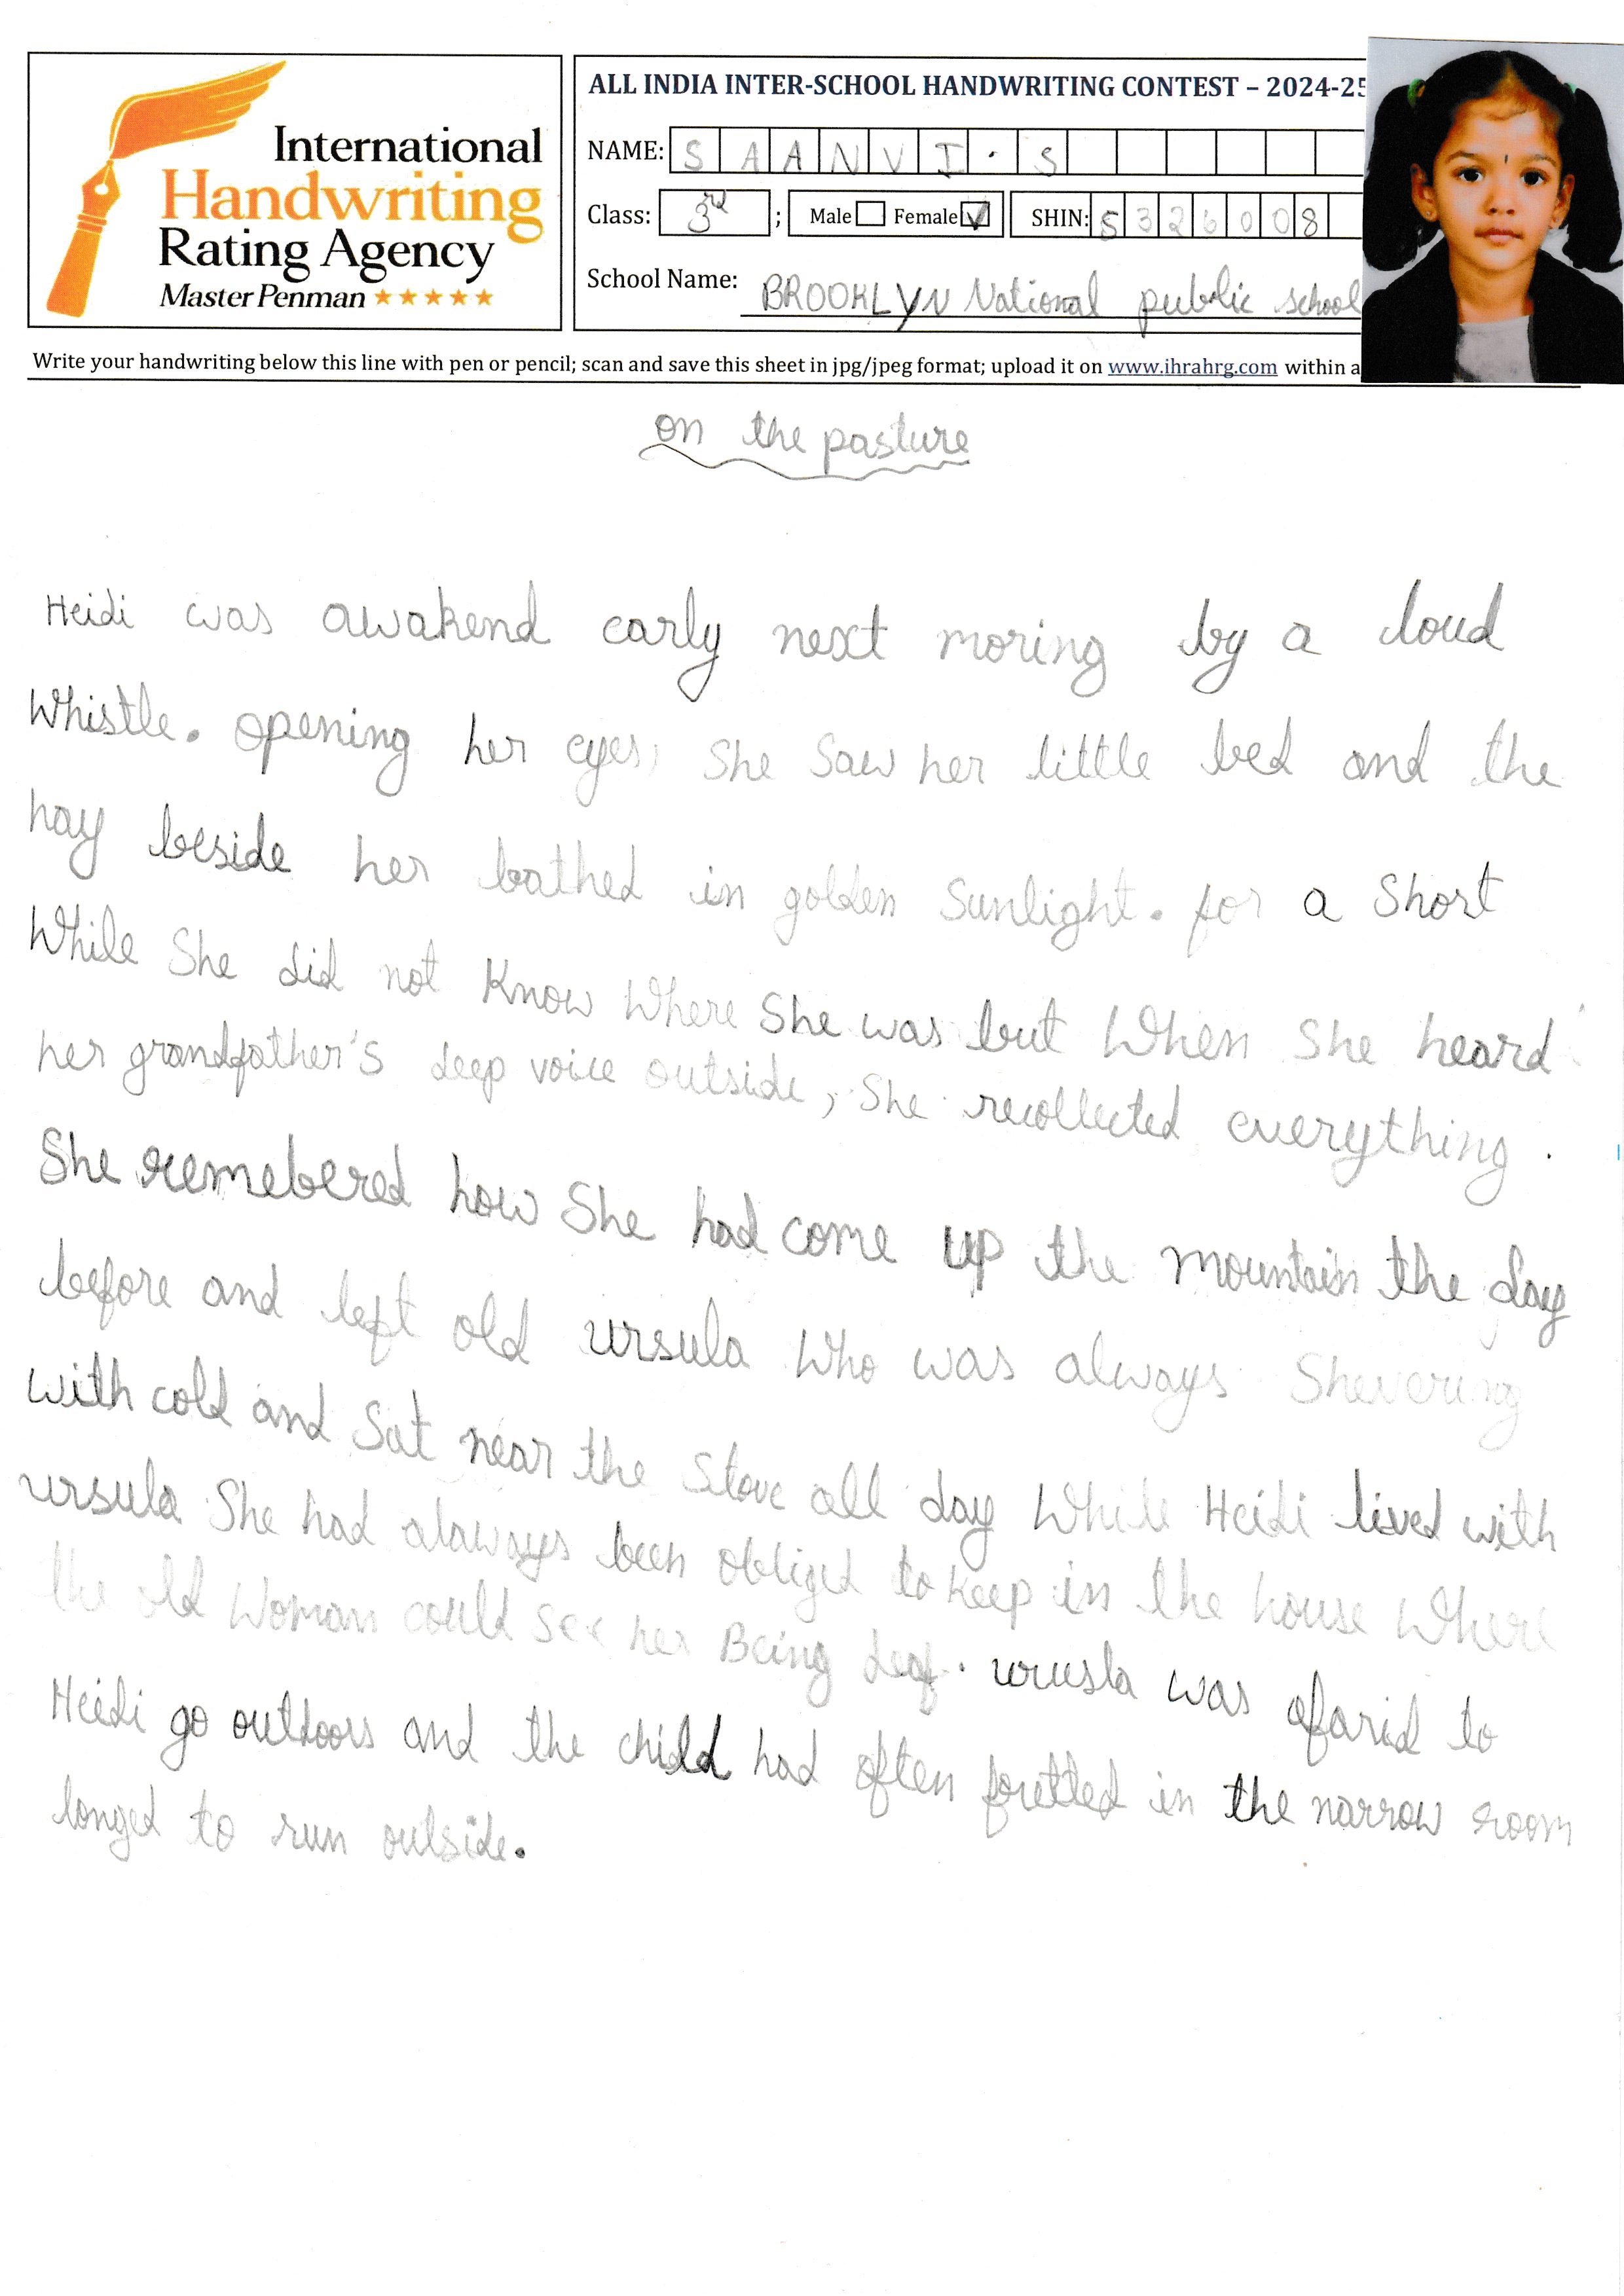 International
Handwriting
Rating Agency
Master Penman
ALL INDIA INTER-SCHOOL HANDWRITING CONTEST – 2024-25
NAME: SAANVI.S
Class: 3rd ; Male Female SHIN: 5326008
School Name: BROOKLYN National public school
Write your handwriting below this line with pen or pencil; scan and save this sheet in jpg/jpeg format; upload it on www.ihrahrg.com within a
on the pasture
Heidi was awakend early next moring by a loud
Whistle. opening her eyes, She Saw her little bed and the
hay beside her bathed in golden Sunlight. for a Short
While She did not Know Where She was but When She heard
her grandfather's deep voice outside, She recollected everything.
She remebered how She had come up the mountain the day
before and left old ursula Who was always Shevering
with cold and Sat near the Stove all day While Heidi lived with
ursula She had alaways been obliged to Keep in the house Where
the old Woman could see her Being deaf. urusla was afarid to
Heidi go outdoors and the child had often fretted in the narrow room
longed to run outside.